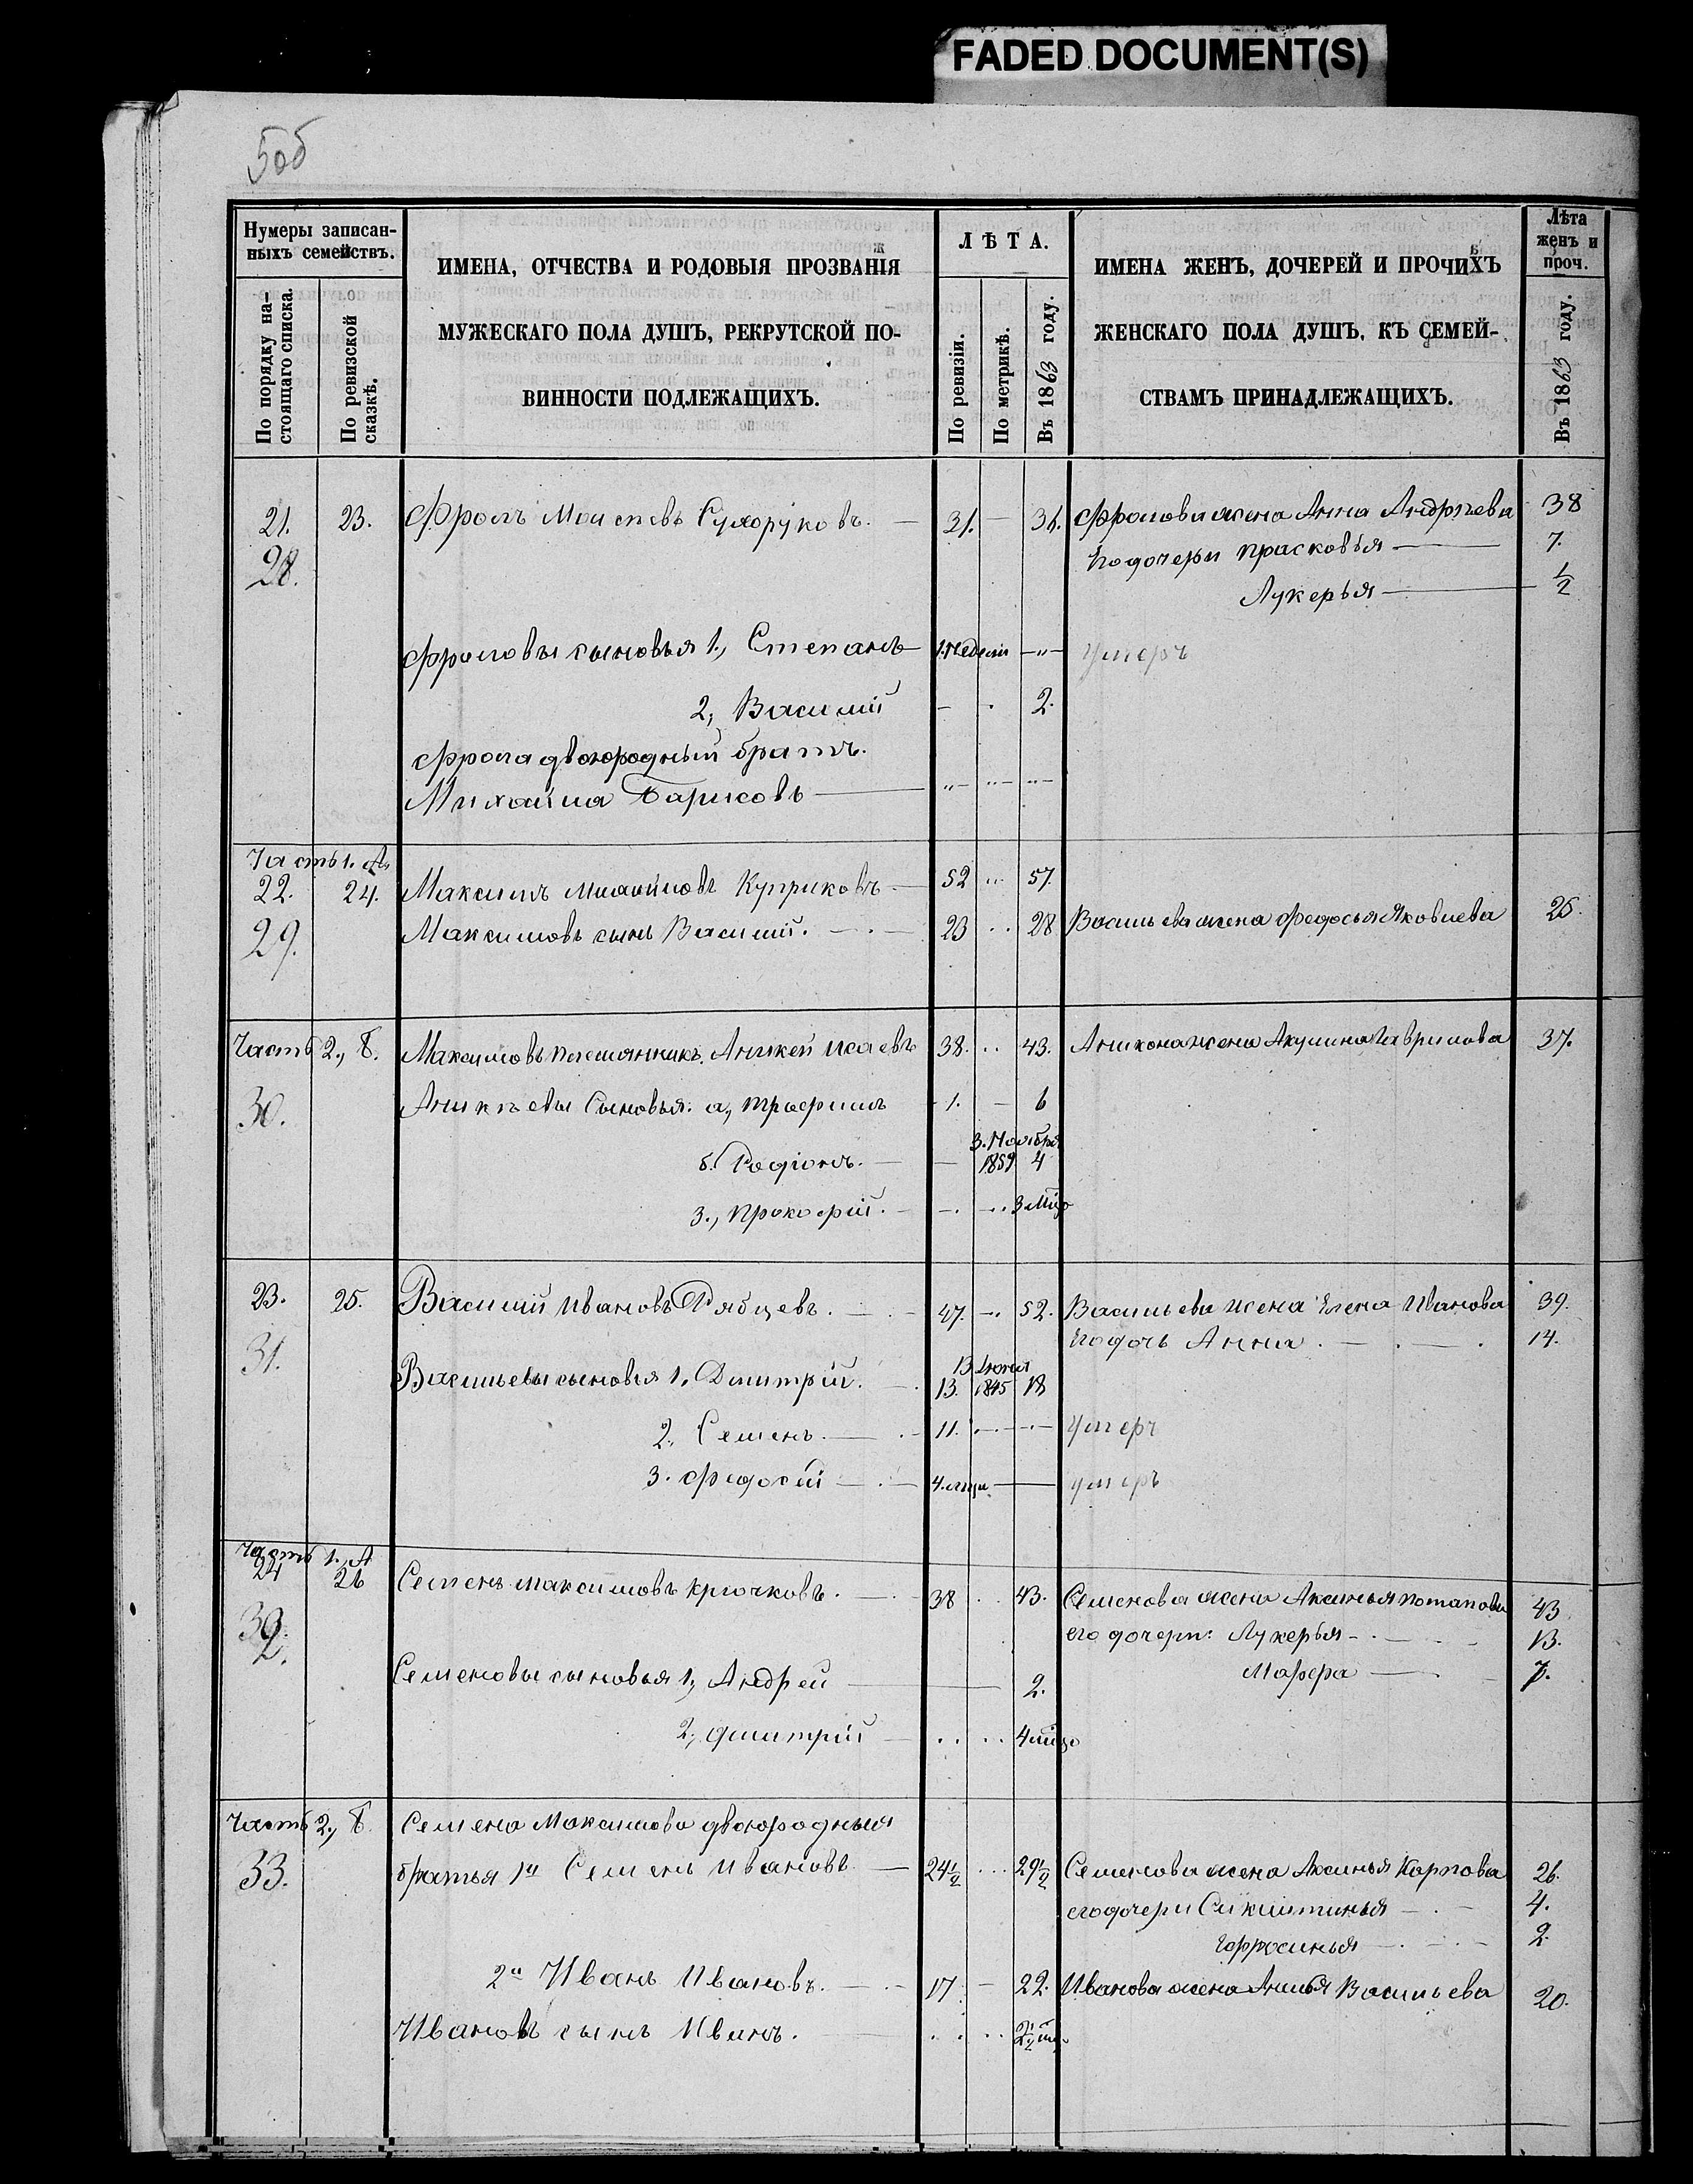 FADED DOCUMENT(S)
5об
Нумеры записан-
ныхъ семействъ.
По порядку на-
стоящаго списка.
По ревизской
сказкѣ.
ИМЕНА, ОТЧЕСТВА И РОДОВЫЯ ПРОЗВАНІЯ
МУЖЕСКАГО ПОЛА ДУШЪ, РЕКРУТСКОЙ ПО-
ВИННОСТИ ПОДЛЕЖАЩИХЪ.
ЛѢТА.
По ревизіи.
По метрикѣ.
Въ 1863 году.
ИМЕНА ЖЕНЪ, ДОЧЕРЕЙ И ПРОЧИХЪ
ЖЕНСКАГО ПОЛА ДУШЪ, КЪ СЕМЕЙ-
СТВАМЪ ПРИНАДЛЕЖАЩИХЪ.
Лѣта
женъ и
проч.
Въ 1863 году.
21. 23. Фролъ Моисеевъ Сухоруковъ. — 31. — 36. Фролова жена Анна Андрѣева 38
28. Его дочери Прасковья — 7.
Лукерья — 1/2
Фроловы сыновья 1., Степанъ — 1. недели — " — умеръ
2., Василий — . 2.
Фрола двоюродный братъ.
Михаила Барисовъ — " — " — " —
Часть 1. А.
22. 24. Максимъ Куприковъ — 52 ... 57.
29. Максимовъ сынъ Василий. — 23 .. 28 Васильева жена Федосья Яковлева 25.
Часть 2., Б. Максимовъ племянникъ. Аникей Исаевъ 38. .. 43. Аникона жена Акулина Гаврилова 37.
30. Аникѣевы Сыновья: а, Трофимъ 1. — 6
3. Ноября
б. Родіонъ. — — 1859 4
3., Прокофій. — . .. 3 мцо
23. 25. Василий Ивановъ Рябцевъ. — 47. — 52. Васильева жена Елена Иванова 39.
31. Его дочь Анна. — . — . 14.
13 Июня
Васильевы сыновья 1, Дмитрій. 13. 1845 18
2., Семенъ. — 11. — — умеръ
3. Федосий — 4. мцы. — умеръ
Часть 1., А
24 26 Семенъ Максимовъ Крючковъ. — 38 .. 43. Семенова жена Аксинья Потапова 43.
32. его дочери: Лукерья — . — 13.
Марфа — 7.
Семеновы сыновья 1, Андрей — 2.
2., Дмитрій — .. .. 4 мцо
Часть 2., Б. Семена Максимова двоюродныя
33. братья 1й Семенъ Ивановъ — 24 1/2 ... 29 1/2 Семенова жена Аксинья Карпова 26.
его дочери — . — 4.
Ефросинья — . — 2.
2й Иванъ Ивановъ. — 17 — 22. Иванова жена Васильева 20.
Ивановъ сынъ Иванъ. — .. .. 2 1/2 мцо